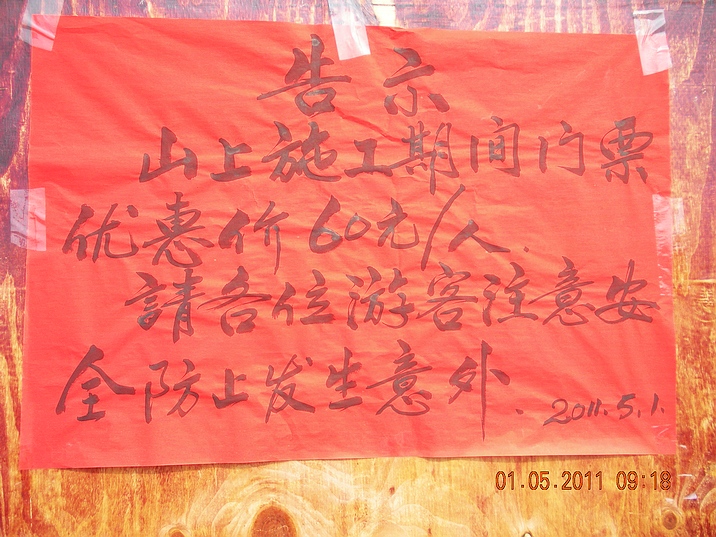 告示
山上施工期间门票
优惠价60元/人.
請各位游客注意安
全防止发生意外.
2011.5.1.
01.05.2011 09:18